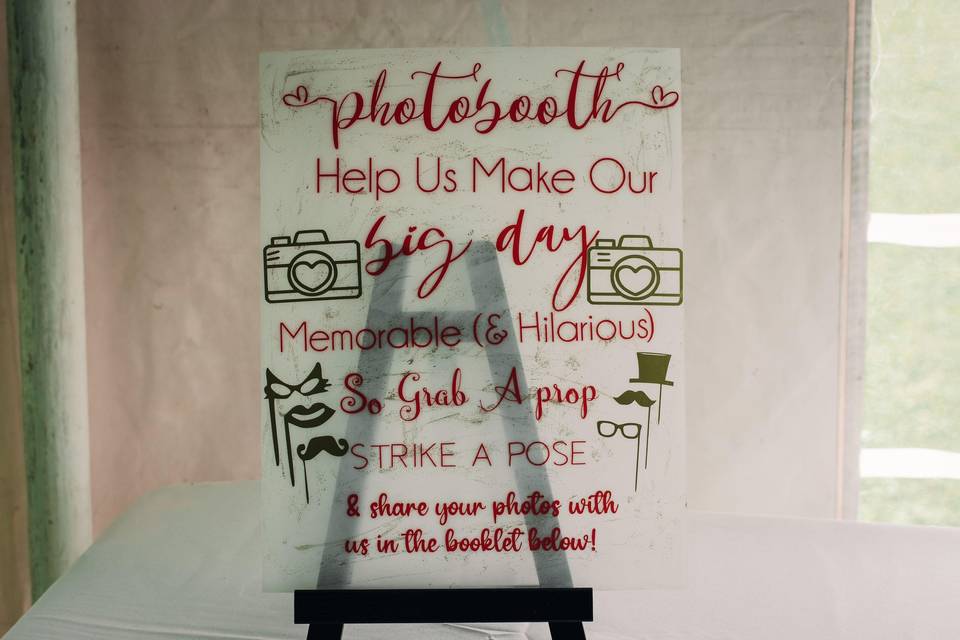 photobooth
Help Us Make Our
big day
Memorable (& Hilarious)
So Grab A prop
STRIKE A POSE
& share your photos with
us in the booklet below!